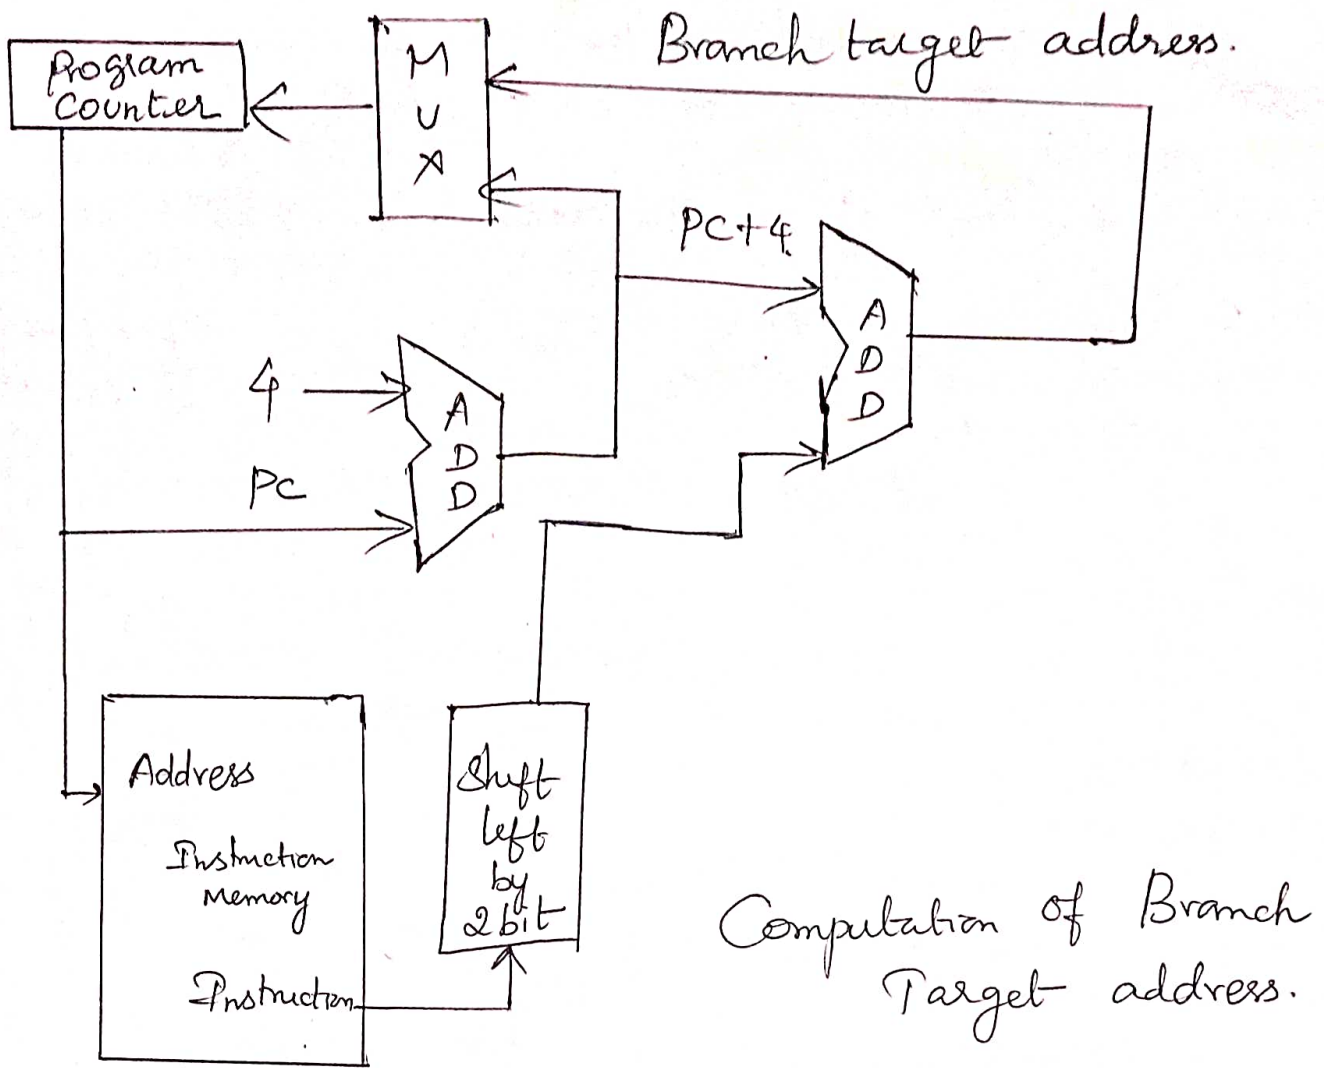 Program
Counter
M
U
X
Branch target address.
PC+4
4
PC
A
D
D
A
D
D
Address
Instruction
Memory
Instruction
Shift
left
by
2 bit
Computation of Branch
Target address.